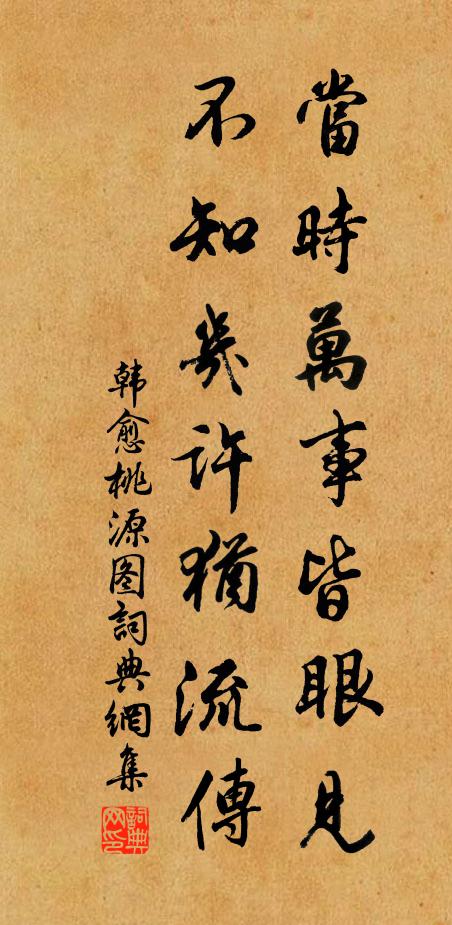 當時萬事皆眼見
不知幾许猶流傳
韩愈桃源图詞典網集
詞典网印